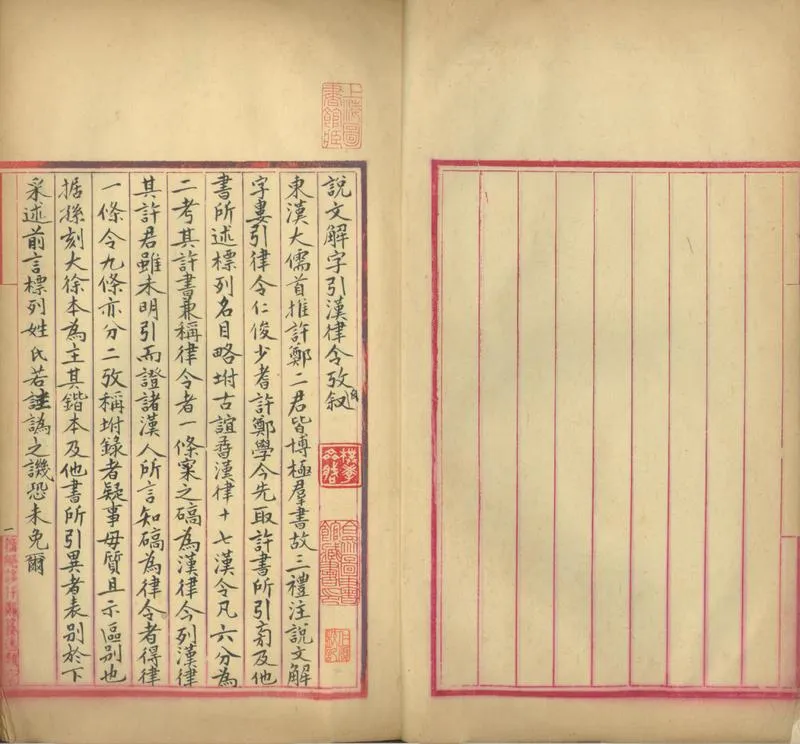 說文解字引漢律令攷自叙
東漢大儒首推許鄭二君皆博極羣書故三禮注說文解
字婁引律令仁俊少耆許鄭學今先取許書所引及他
書所述標列名目略坿古誼番漢律十七漢令凡六分為
二考其許書兼稱律令者一條案之碻為漢律今列漢律
其許君雖未明引而證諸漢人所言知碻為律令者得律
一條令九條亦分二攷稱坿錄者疑事毋質且示區別也
据孫刻大徐本為主其鍇本及他書所引異者表別於下
采述前言標列姓氏若詿譌之譏恐未免爾
上海圖書館藏
一